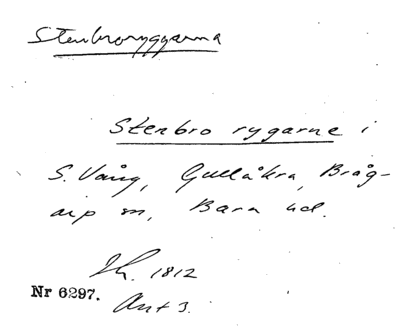 Stenbroryggarna
Stenbro rygarne i
S. Vång, Gullåkra, Bråg-
arp m, Bara hd.
Sk. 1812
Nr 6297.
Ant 3.